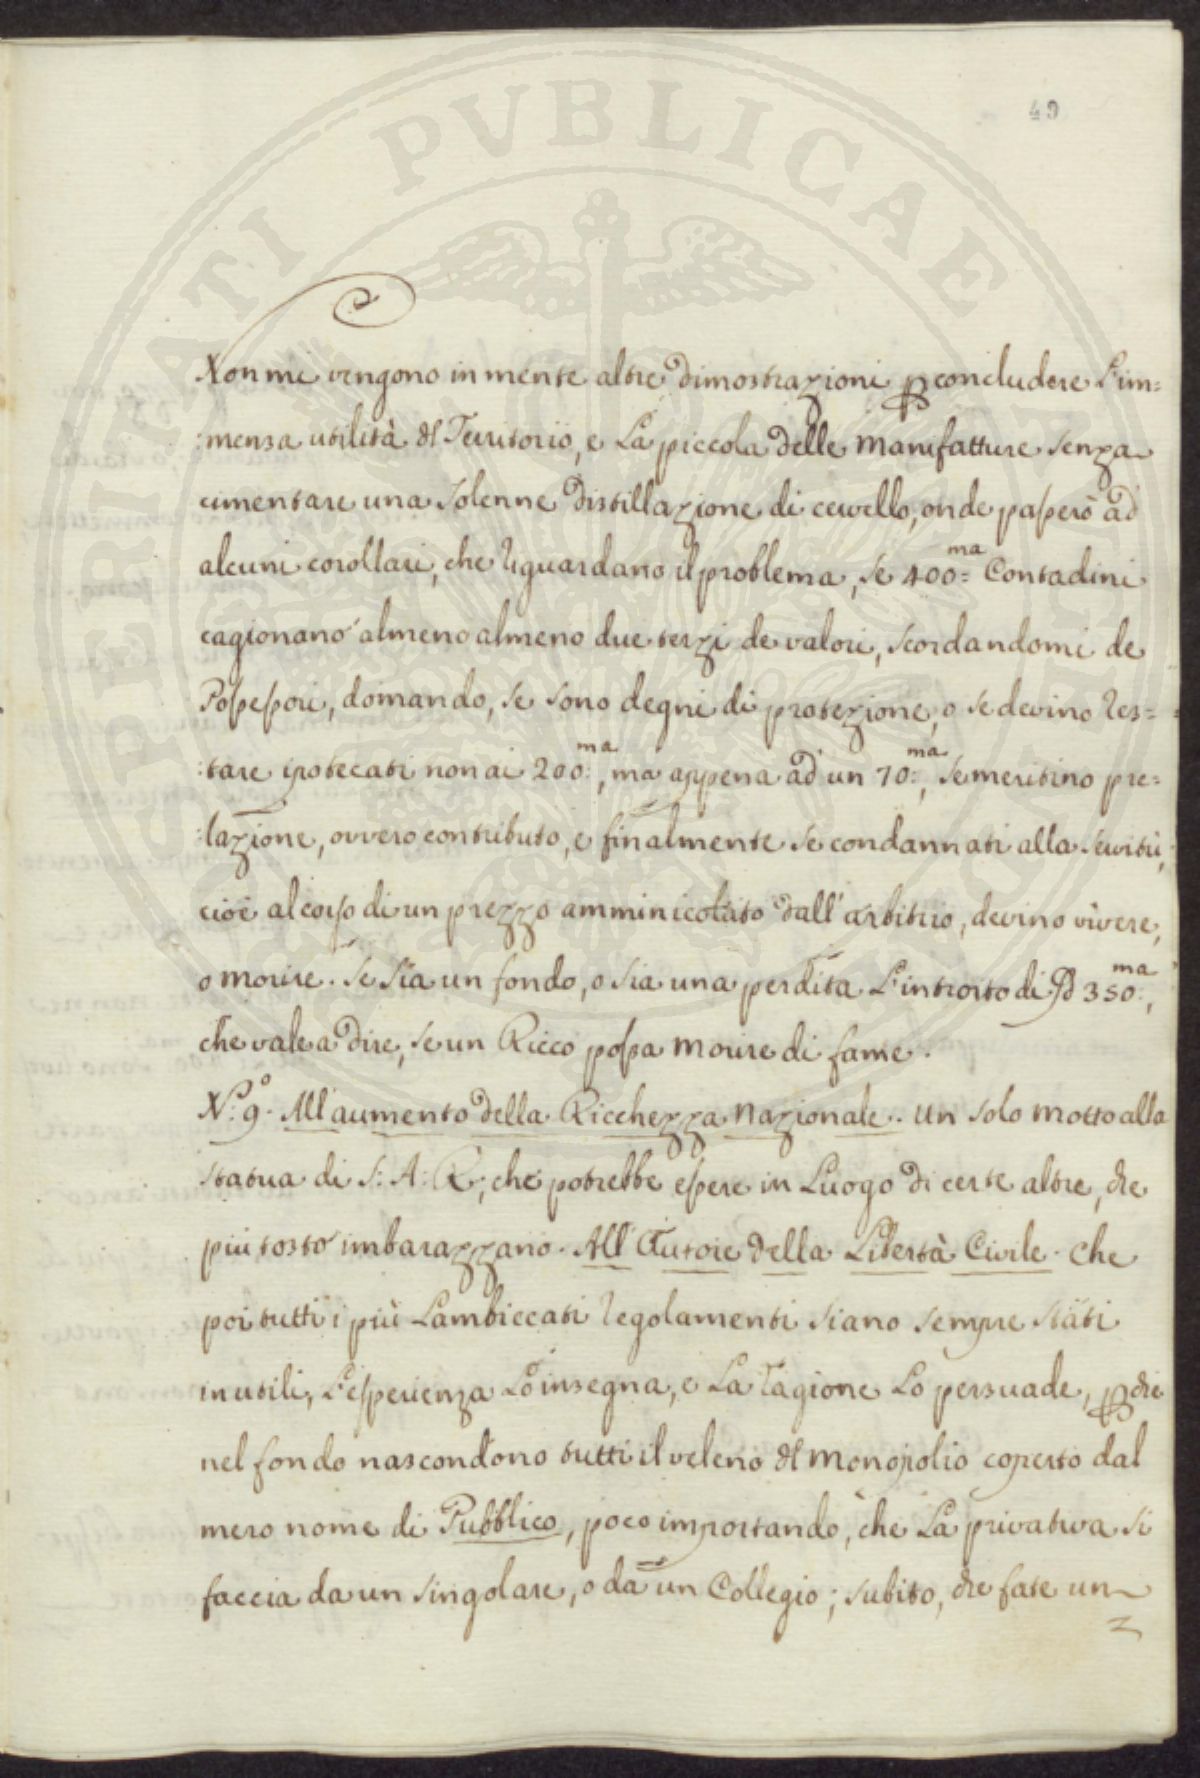 49
Non mi vengono in mente altre dimostrazioni p concludere L'im=
:mensa utilità dl Territorio, e La piccola delle manifatture senza
cimentare una solenne distillazione di cervello, onde passerò ad
alcuni corollari, che riguardano il problema, se 400=ma Contadini
cagionano almeno almeno due terzi de valori, scordandomi de
Possessori, domando, se sono degni di protezione, o se devino res=
:tare ipotecati non ai 200:ma, ma appena ad un 70:ma, se meritino pre=
:lazione, ovvero contributo, e finalmente se condannati alla servitù,
cioè al corso di un prezzo amminicolato dall'arbitrio, devino vivere,
o morire. Se sia un fondo, o sia una perdita L'introito di 350:ma,
che vale a dire, se un Ricco possa morire di fame.
N.º 9. All'aumento della Ricchezza Nazionale. Un solo motto alla
statua di S: A: R:, che potrebbe essere in Luogo di certe altre, che
più tosto imbarazzano. All'Autore della Libertà Civile. Che
poi tutti i più Lambiccati regolamenti siano sempre stati
inutili, L'esperienza Lo insegna, e La ragione Lo persuade, p che
nel fondo nascondono tutti il veleno dl monopolio coperto dal
mero nome di Pubblico, poco importando, che La privativa si
faccia da un singolare, o da un Collegio; subito, che fate un
PROSPERITATI PVBLICAE AVGENDAE